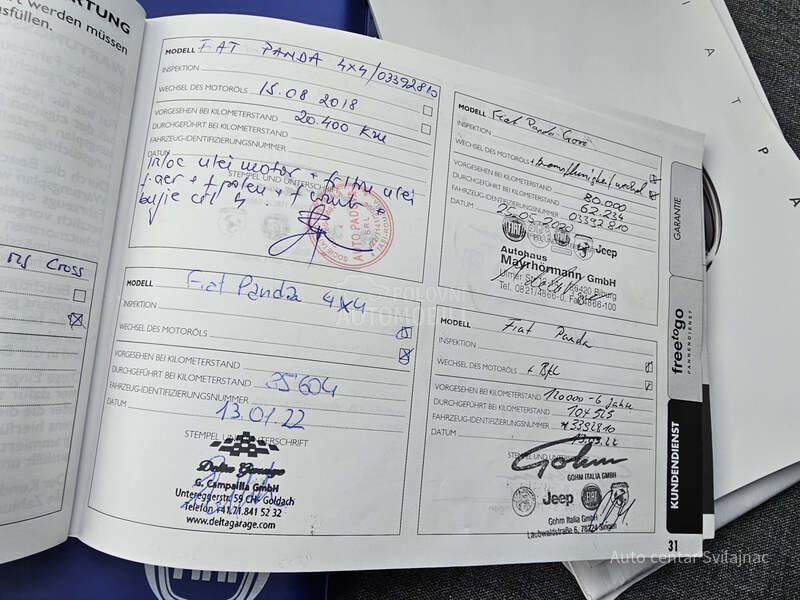 RTUNG
rt werden müssen
sfüllen.
Cross
MODELL FIAT PANDA 4x4/03392810
INSPEKTION
WECHSEL DES MOTORÖLS
15.08 2018
VORGESEHEN BEI KILOMETERSTAND
20.400 Km
DURCHGEFÜHRT BEI KILOMETERSTAND
FAHRZEUG-IDENTIFIZIERUNGSNUMMER
DATUM
ulei motor + filtru ulei
STEMPEL UND UNTERSCHRIFT
f.aer + f polen +
bujie
AUTO PADU
SRL
MODELL Fiat Panda 4x4
INSPEKTION
WECHSEL DES MOTORÖLS
VORGESEHEN BEI KILOMETERSTAND
DURCHGEFÜHRT BEI KILOMETERSTAND 35604
FAHRZEUG-IDENTIFIZIERUNGSNUMMER
DATUM 13.01.22
STEMPEL UND UNTERSCHRIFT
Delta Garage
G. Campailla GmbH
Untereggerstr. 59 CH-Goldach
Telefon +41 71 841 52 32
www.deltagarage.com
MODELL Fiat Panda Cross
INSPEKTION
WECHSEL DES MOTORÖLS
VORGESEHEN BEI KILOMETERSTAND 80.000
DURCHGEFÜHRT BEI KILOMETERSTAND 62.234
FAHRZEUG-IDENTIFIZIERUNGSNUMMER 03392810
DATUM
FIAT
Jeep
Autohaus
Mayrhörmann GmbH
Ulmer
Biburg
Tel. 0821/4866-0, Fax 4866-100
MODELL Fiat Panda
INSPEKTION
WECHSEL DES MOTORÖLS + Bfl
VORGESEHEN BEI KILOMETERSTAND 120000 - 6 Jahre
DURCHGEFÜHRT BEI KILOMETERSTAND 104525
FAHRZEUG-IDENTIFIZIERUNGSNUMMER 3392810
DATUM
Gohm
GOHM ITALIA GMBH
Jeep
FIAT
Gohm Italia GmbH
Laubwaldstraße 6, 78224 Singen
31
GARANTIE
freetogo
PANNENDIENST
KUNDENDIENST
I A T P A
FIAT
POLOVNI
AUTOMOBILI
Auto centar Svilajnac